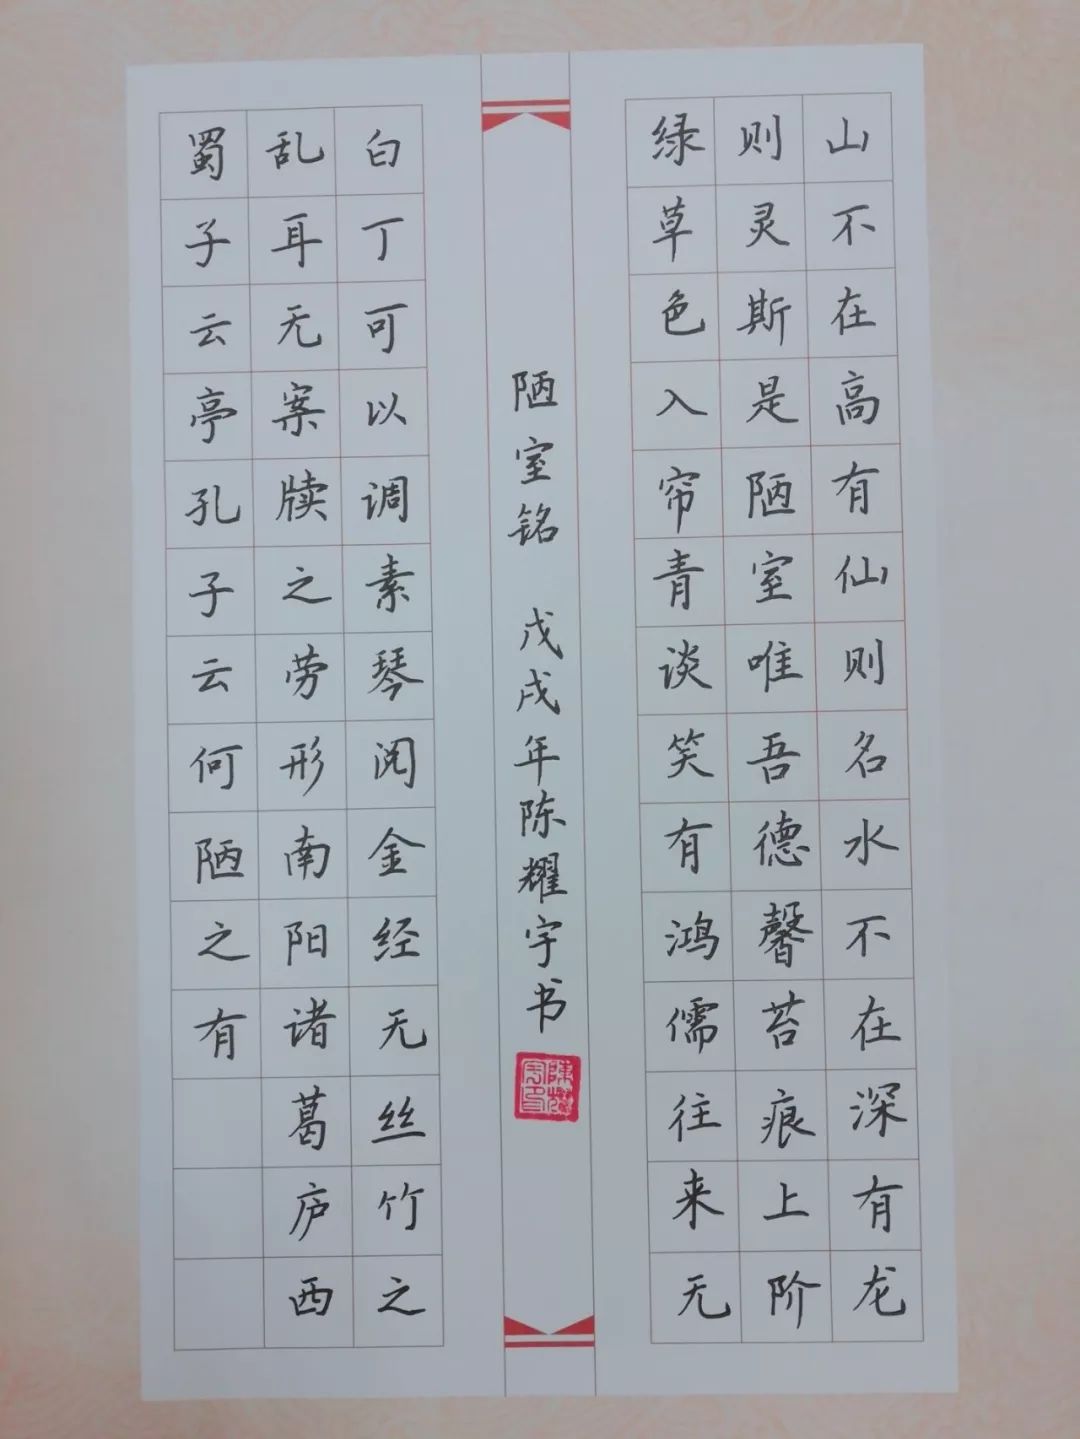 山不在高有仙则名水不在深有龙
则灵斯是陋室唯吾德馨苔痕上阶
绿草色入帘青谈笑有鸿儒往来无
白丁可以调素琴阅金经无丝竹之
乱耳无案牍之劳形南阳诸葛庐西
蜀子云亭孔子云何陋之有
陋室铭 戊戌年陈耀宇书